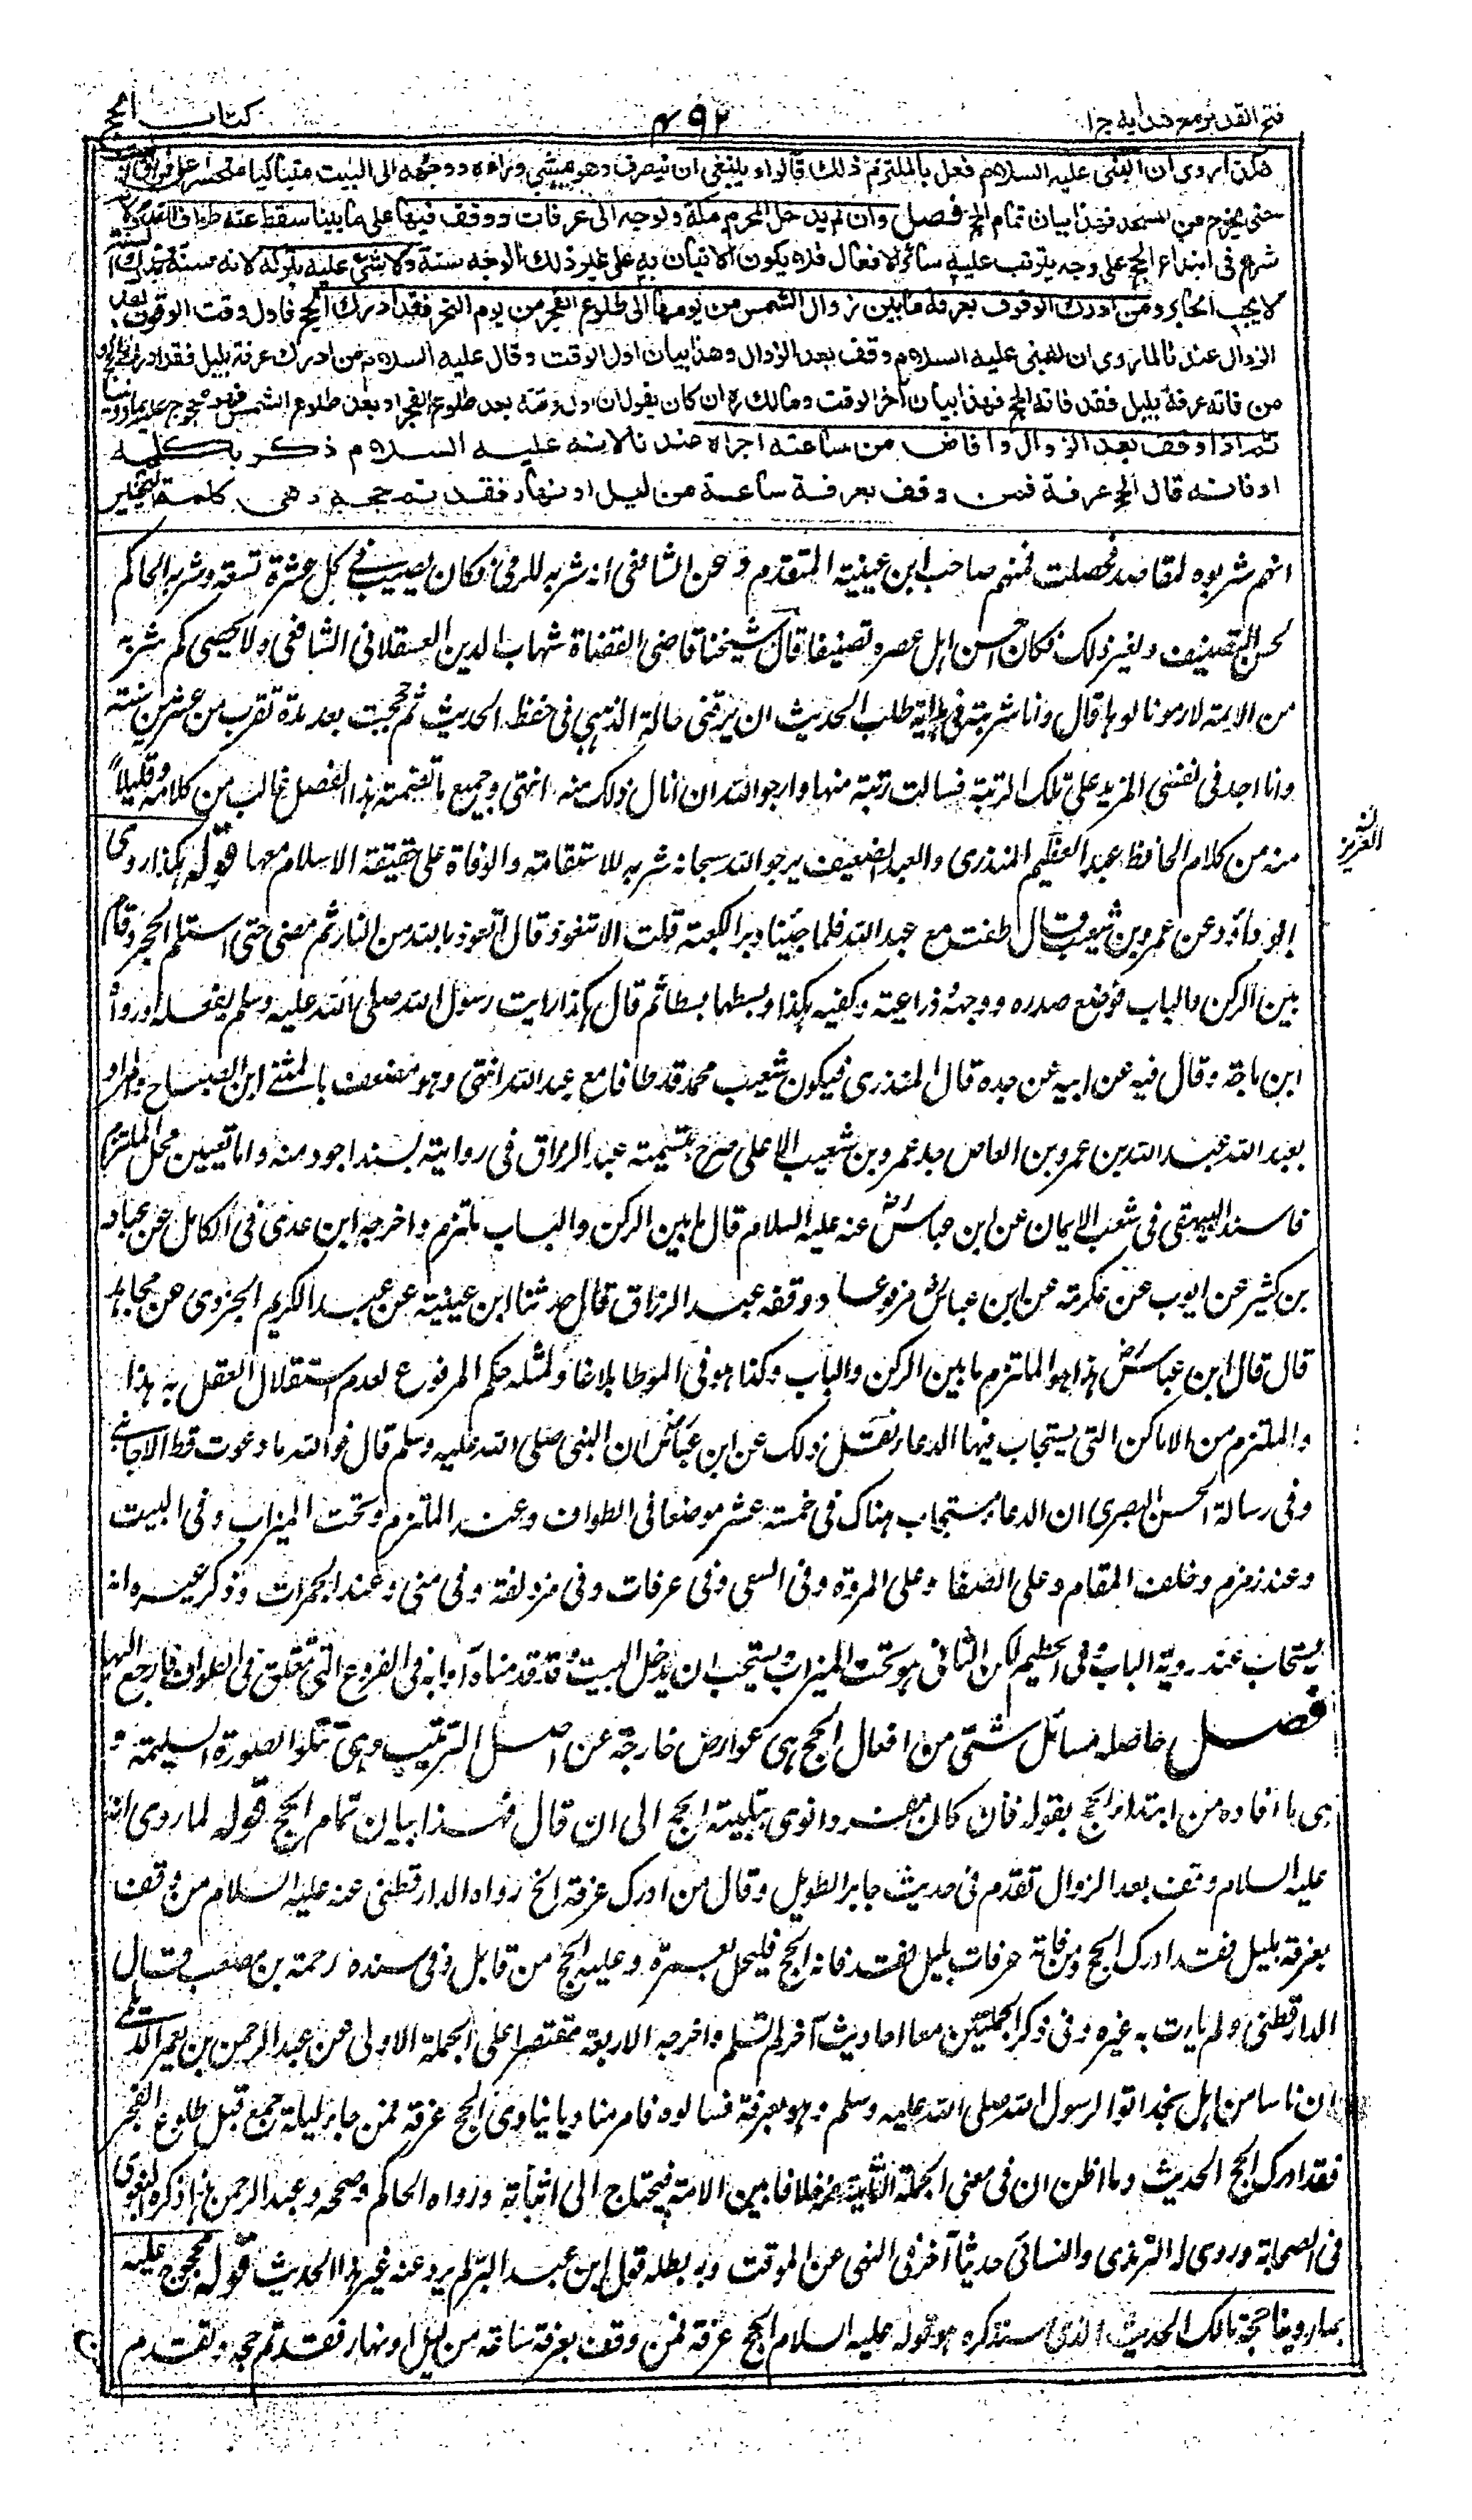 فتح القدير مع هدايه ج ا
۴۹۲
كتاب الحج
هكذا روى ان النبى عليه السلام فعل بالملتزم ذلك قالوا و ينبغى ان ينصرف وهو يمشي وراءه ووجهه الى البيت متباكيا متحسرا على فراق البيت
حتى يخرج من المسجد فهذا بيان تمام الحج فصل وان لم يدخل المحرم مكة وتوجه الى عرفات ووقف فيها على ما بينا سقط عنه طواف القدوم لانه
شرع فى ابتداء الحج على وجه يترتب عليه سائر الافعال فلا يكون الاتيان به على غير ذلك الوجه سنة ولا شئ عليه بتركه لانه سنة وبترك السنة
لا يجب الجابر ومن ادرك الوقوف بعرفة ما بين زوال الشمس من يومها الى طلوع الفجر من يوم النحر فقد ادرك الحج فاول وقت الوقوف بعد
الزوال عندنا لما روى ان النبى عليه السلام وقف بعد الزوال وهذا بيان اول الوقت وقال عليه السلام من ادرك عرفة بليل فقد ادرك الحج و
من فاته عرفة بليل فقد فاته الحج فهذا بيان آخر الوقت ومالك ره ان كان يقول ان اول وقته بعد طلوع الفجر او بعد طلوع الشمس فهو محجوج عليه بما روينا
ثم اذا وقف بعد الزوال وافاض من ساعته اجزاه عندنا لانه عليه السلام ذكر بكلمة
او فانه قال الحج عرفة فمن وقف بعرفة ساعة من ليل او نهار فقد تم حجه وهى كلمة التخيير
انهم شربوه لمقاصد فحصلت فمنهم صاحب ابن عيينة المتقدم و عن الشافعى انه شربه للرمى فكان يصيب فى كل عشرة تسعة وشربه الحاكم
لحسن التصنيف ولغير ذلك فكان احسن اهل عصره تصنيفا قال شيخنا قاضى القضاة شهاب الدين العسقلانى الشافعى ولا يحصى كم شربه
من الائمة لامور نالوها قال وانا شربته فى بداية طلب الحديث ان يرزقنى حالة الذهبى فى حفظ الحديث ثم حججت بعد مدة تقرب من عشرين سنة
وانا اجد فى نفسى المزيد على تلك الرتبة فسالت رتبة منها وارجو الله ان انال ذلك منه انتهى وجميع ما تضمنه هذا الفصل غالب من كلامه وقليلا
منه من كلام الحافظ عبد العظيم المنذرى والعبد الضعيف يرجو الله سبحانه شربه للاستقامة والوفاة على حقيقة الاسلام معها قوله هكذا روى
العزيز
ابو داؤد عن عمرو بن شعيب قال طفت مع عبد الله فلما جئنا دبر الكعبة قلت الا تتعوذ قال نتعوذ بالله من النار ثم مضى حتى استلم الحجر وقام
بين الركن والباب فوضع صدره ووجهه وذراعيه وكفيه هكذا وبسطهما بسطا ثم قال هكذا رايت رسول الله صلى الله عليه وسلم يفعله ورواه
ابن ماجة وقال فيه عن ابيه عن جده قال المنذرى فيكون شعيب محمد قد طافا مع عبد الله انتهى وهو مضعف بالمثنى ابن الصباح والمراد
بعبد الله عبد الله بن عمرو بن العاص جد عمرو بن شعيب الاعلى صرح بتسميته عبد الرزاق فى روايته بسند اجود منه واما تعيين محل الملتزم
فاسند البيهقى فى شعب الايمان عن ابن عباس رض عنه عليه السلام قال ما بين الركن والباب ملتزم واخرجه ابن عدى فى الكامل عن عباد
بن كثير عن ايوب عن عكرمة عن ابن عباس مرفوعا ووقفه عبد الرزاق قال حدثنا ابن عيينة عن عبد الكريم الجزرى عن مجاهد
قال قال ابن عباس رض هذا هو الملتزم ما بين الركن والباب وكذا هو فى الموطا بلاغا ولمثله حكم المرفوع لعدم استقلال العقل به هذا
والملتزم من الاماكن التى يستجاب فيها الدعاء نقل ذلك عن ابن عباس ان النبى صلى الله عليه وسلم قال فوالله ما دعوت قط الا اجابنى
وفى رسالة الحسن البصرى ان الدعاء مستجاب هناك فى خمسة عشر موضعا فى الطواف وعند الملتزم وتحت الميزاب وفى البيت
وعند زمزم وخلف المقام وعلى الصفا وعلى المروة وفى السعى وفى عرفات وفى مزدلفة وفى منى وعند الجمرات وذكر غيره انه
يستجاب عند رؤية البيت وفى الحطيم لكن الثانى هو تحت الميزاب ويستحب ان يدخل البيت وقد قدمناه آدابه فى الفروع التى تتعلق فى الطواف فارجع اليها
فصل حاصله مسائل شتى من افعال الحج هى عوارض خارجة عن اصل الترتيب وهى تتلو الصورة السليمة و
هى ما افاده من ابتداء الحج بقوله فان كان مفردا نوى بتلبيته الحج الى ان قال فهذا بيان تمام الحج قوله لما روى انه
عليه السلام وقف بعد الزوال تقدم فى حديث جابر الطويل وقال من ادرك عرفة الخ رواه الدارقطنى عنه عليه السلام من وقف
بعرفة بليل فقد ادرك الحج ومن فاته عرفات بليل فقد فاته الحج فليحل بعمرة وعليه الحج من قابل وفى سنده رحمة بن مصعب قال
الدارقطنى ولم يات به غيره وفى ذكر الجملتين معا احاديث آخر لم تسلم واخرجه الاربعة مقتصرا على الجملة الاولى عن عبد الرحمن بن يعمر الديلى
ان ناسا من اهل نجد اتوا رسول الله صلى الله عليه وسلم وهو بعرفة فسالوه فامر مناديا ينادى الحج عرفة فمن جاء ليلة جمع قبل طلوع الفجر
فقد ادرك الحج الحديث وما اظن ان فى معنى الجملة الثانية خلافا بين الامة فيحتاج الى اثباته ورواه الحاكم وصححه وعبد الرحمن هذا ذكره البغوى
فى الصحابة وروى له الترمذى والنسائى حديثا آخر فى النهى عن المزفت وبه بطل قول ابن عبد البر لم يرو عنه غير هذا الحديث قوله محجوج عليه
بما روينا حجة مالك الحديث الذى سنذكره هو قوله عليه السلام الحج عرفة فمن وقف بعرفة ساعة من ليل او نهار فقد تم حجه وتقدم